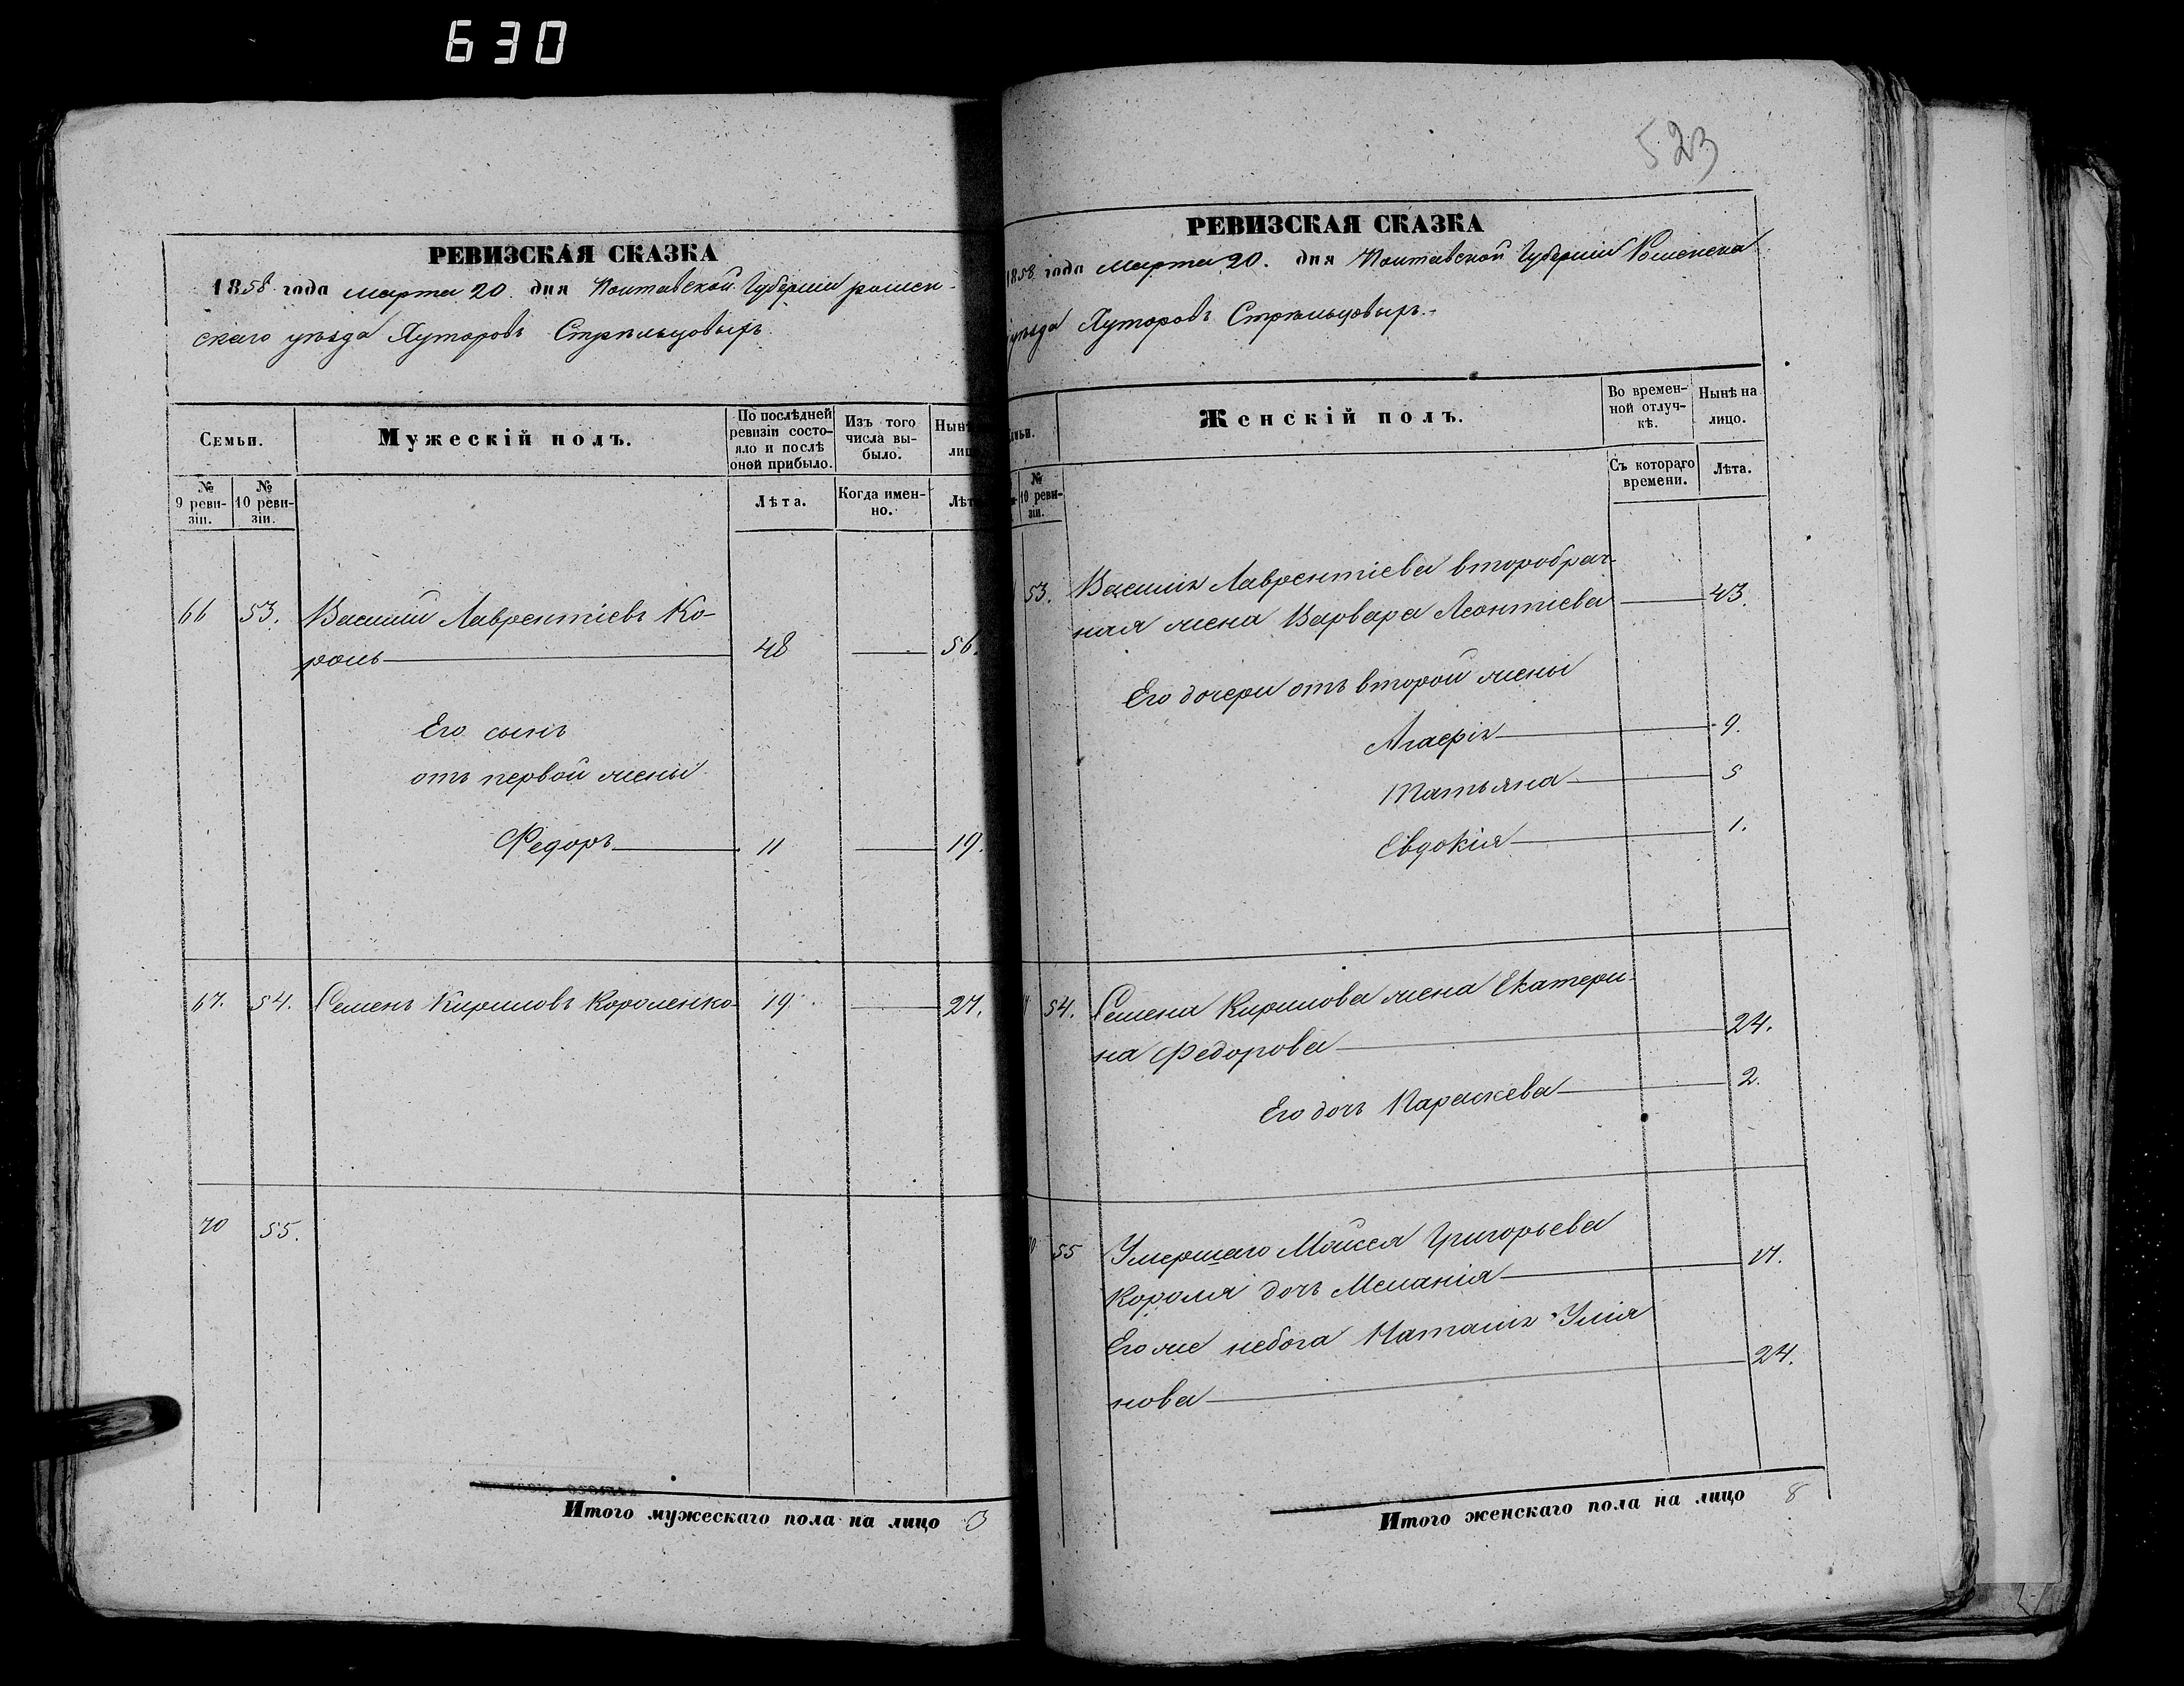 630
РЕВИЗСКАЯ СКАЗКА
1858 года марта 20. дня Полтавской Губерніи ромен-
скаго уѣзда Хуторовъ Стрѣльцовыхъ
Семьи.
Мужескій полъ.
По послѣдней ревизіи состояло и послѣ оной прибыло.
Изъ того числа выбыло.
Нынѣ
лиц
№ 9 ревизіи.
№ 10 ревизіи.
Лѣта.
Когда именно.
Лѣт
66 53. Василій Лаврентіевъ Ко-
роль 48 56.
Его сынъ
отъ первой жены
Федоръ 11 19.
67. 54. Семенъ Кириловъ Короленко 19 27.
70 55.
Итого мужескаго пола на лицо 3
523
РЕВИЗСКАЯ СКАЗКА
1858 года марта 20. дня Полтавской Губерніи Роменска
уѣзда Хуторовъ Стрѣльцовыхъ.
емьи.
Женскій полъ.
Во временной отлучкѣ.
Нынѣ на лицо.
№ 10 ревизіи.
Съ котораго времени.
Лѣта.
53. Василія Лаврентіева второбрач-
ная жена Варвара Леонтіева 43.
Его дочери отъ второй жены
Агафія 9.
Татьяна 5
Евдокія 1.
54. Семена Кирилова жена Екатери-
на Федорова 24.
Его дочь Параскева 2.
55 Умершаго Мойсея Григорьева
Короля дочь Меланія 17.
Его же небога Наталія Улія
нова 24.
Итого женскаго пола на лицо 8